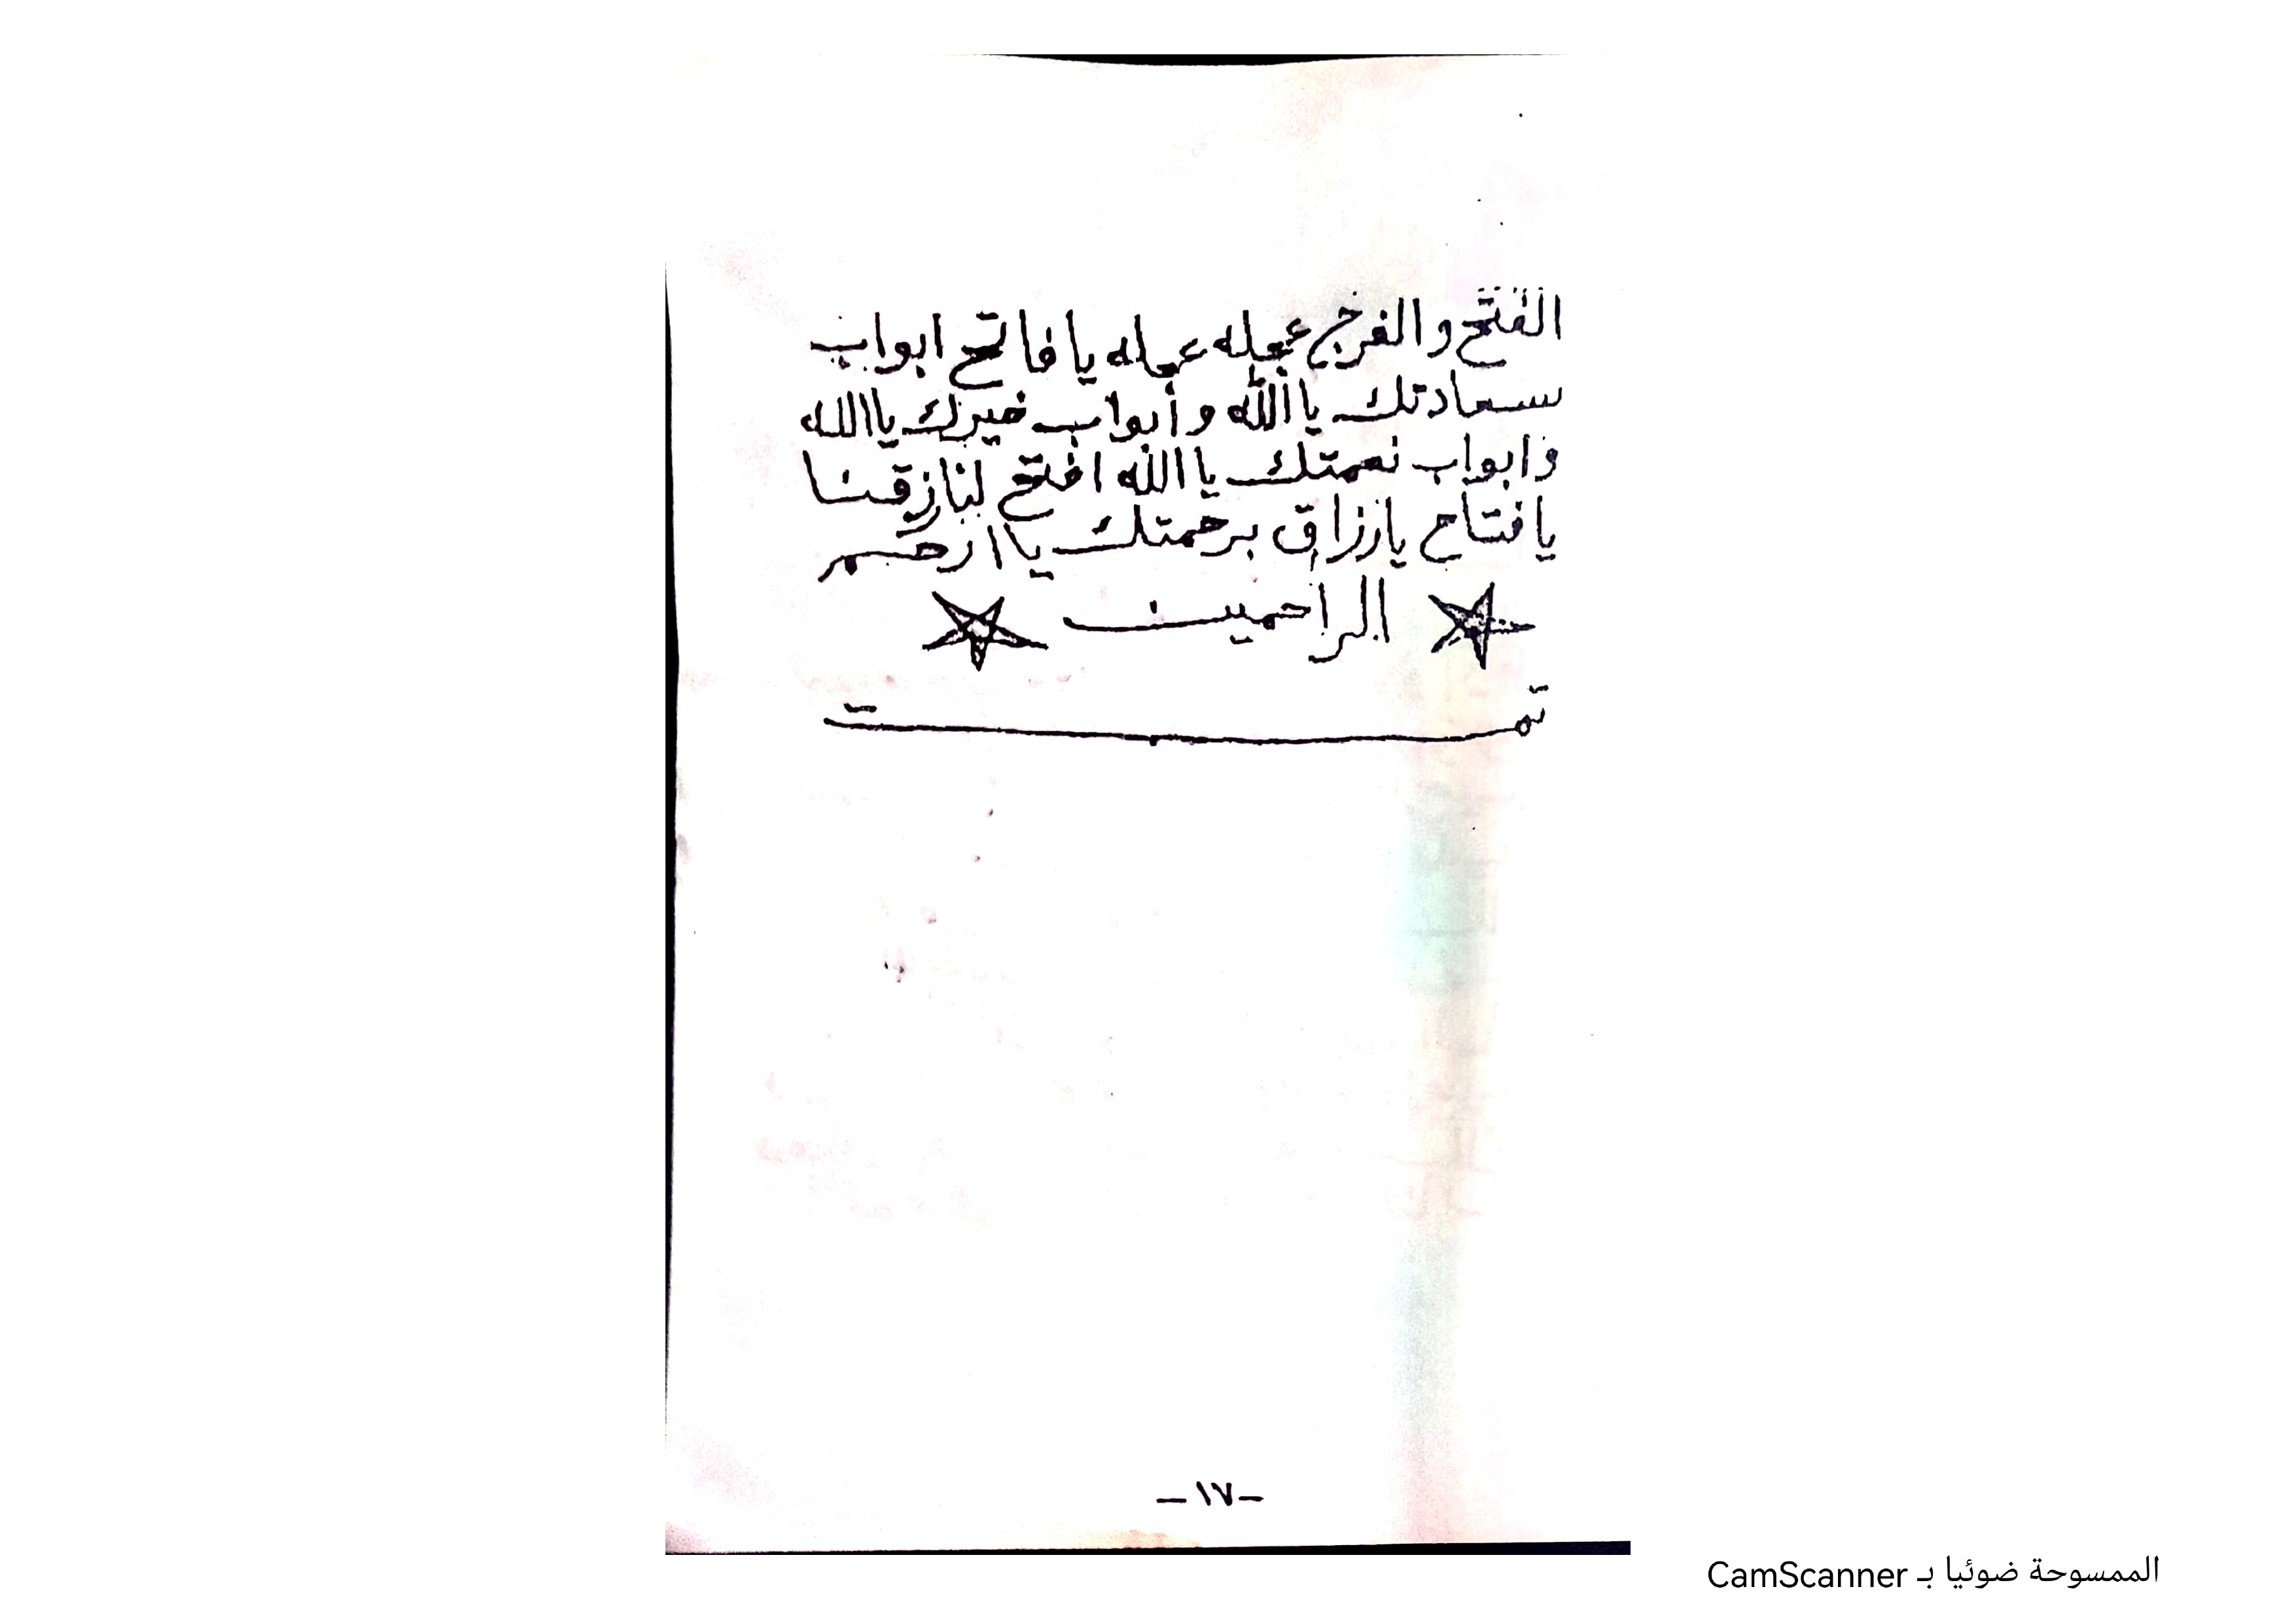 الفتح والفرج عجله عجله يا فاتح ابواب
سعادتك يا الله وأبواب خيرك يا الله
وابواب نعمتك يا الله افتح لنا زقنا
يا فتاح يا رزاق برحمتك يا ارحم
الراحمين
تمت
- ١٧ -
الممسوحة ضوئيا بـ CamScanner